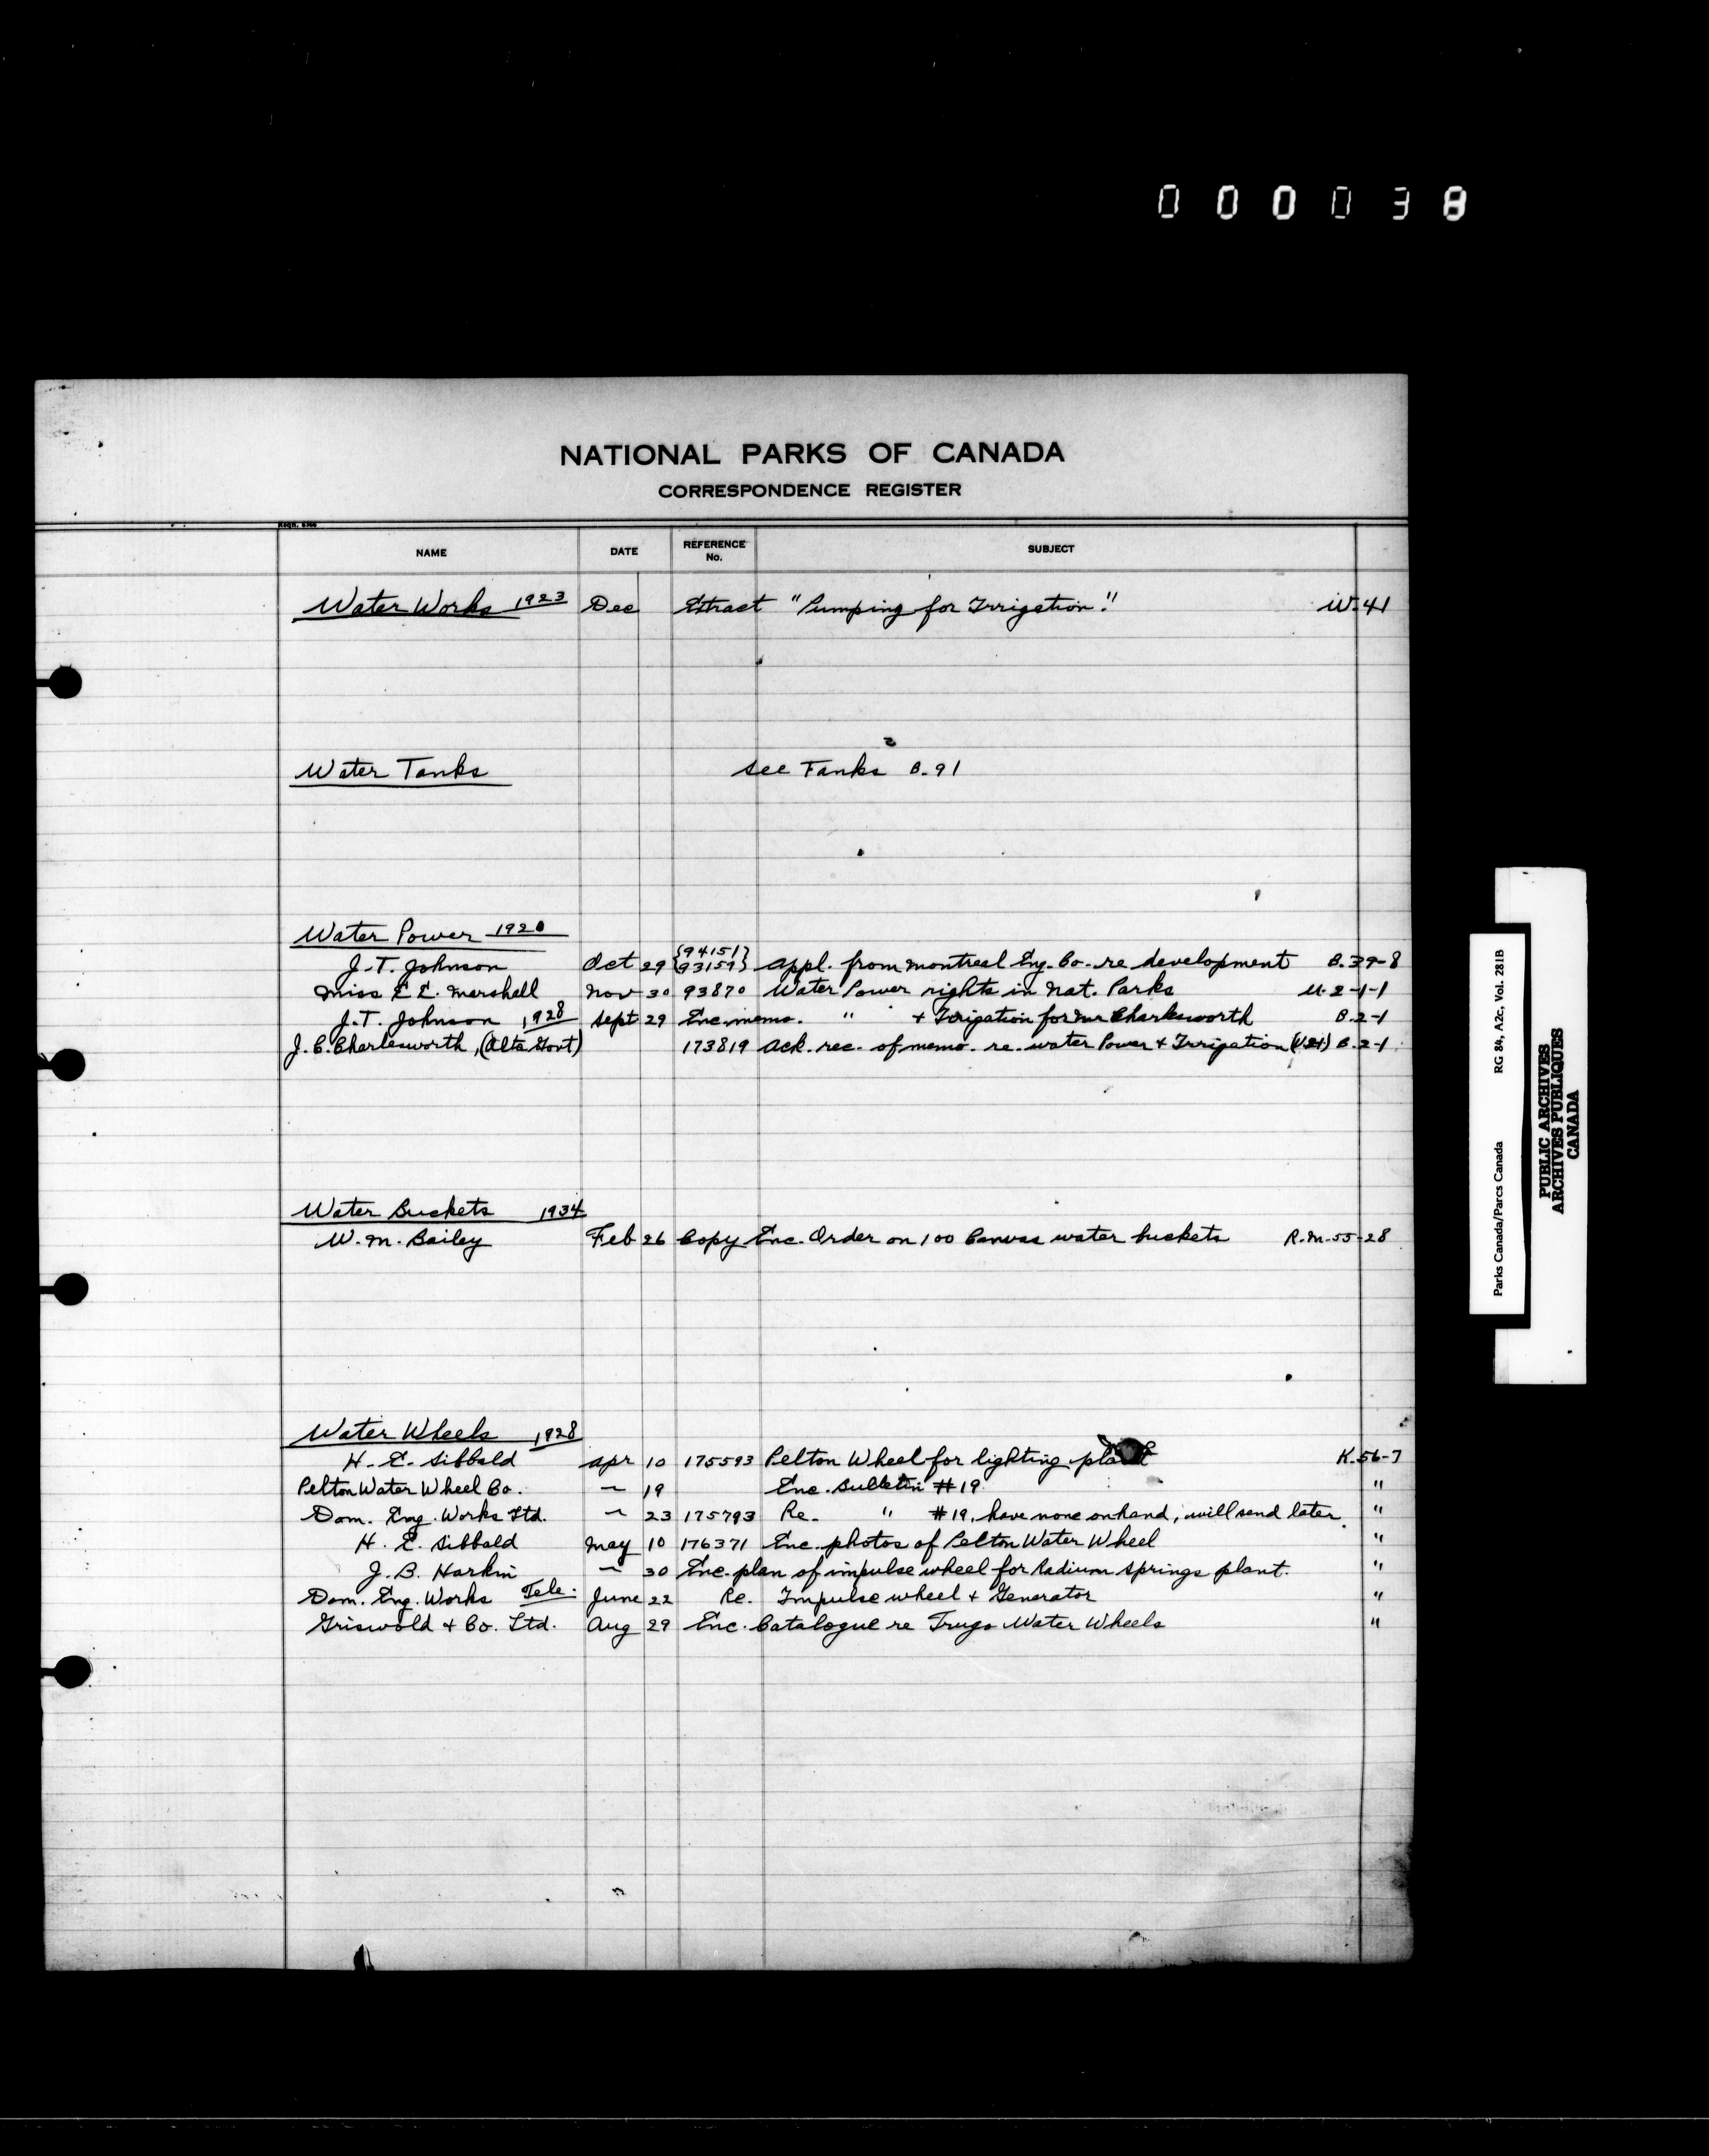 000038
NATIONAL PARKS OF CANADA
CORRESPONDENCE REGISTER
NAME DATE REFERENCE No. SUBJECT
Water Works 1923 Dec Extract "Pumping for Irrigation." W.41
Water Tanks See Tanks B.91
Water Power 1920
J.T. Johnson Oct 29 {94151} {93159} Appl. from Montreal Eng. Co. re development B.39-8
Miss E.E. Marshall Nov 30 93870 Water Power rights in Nat. Parks U.2-1-1
J.T. Johnson 1928 Sept 29 Enc. memo. " + Irrigation for Mr Charlesworth B.2-1
J.C. Charlesworth, (Alta Govt) 173819 Ack. rec. of memo. re. water Power + Irrigation B.2-1
Water Buckets 1934
W.M. Bailey Feb 26 Copy Enc. Order on 100 Canvas water buckets R.M.55-28
Water Wheels 1928
H.E. Sibbald Apr 10 175593 Pelton Wheel for lighting plant K.56-7
Pelton Water Wheel Co. ~ 19 Enc. Bulletin #19 "
Dom. Eng. Works Ltd. ~ 23 175793 Re. " #19, have none on hand, will send later. "
H.E. Sibbald May 10 176371 Enc. photos of Pelton Water Wheel "
J.B. Harkin ~ 30 Enc. plan of impulse wheel for Radium Springs plant. "
Dom. Eng. Works Tele. June 22 Re. Impulse wheel + Generator "
Griswold + Co. Ltd. Aug 29 Enc. Catalogue re Trugo Water Wheels "
Parks Canada/Parcs Canada RG 84, A2c, Vol. 281B
PUBLIC ARCHIVES
ARCHIVES PUBLIQUES
CANADA